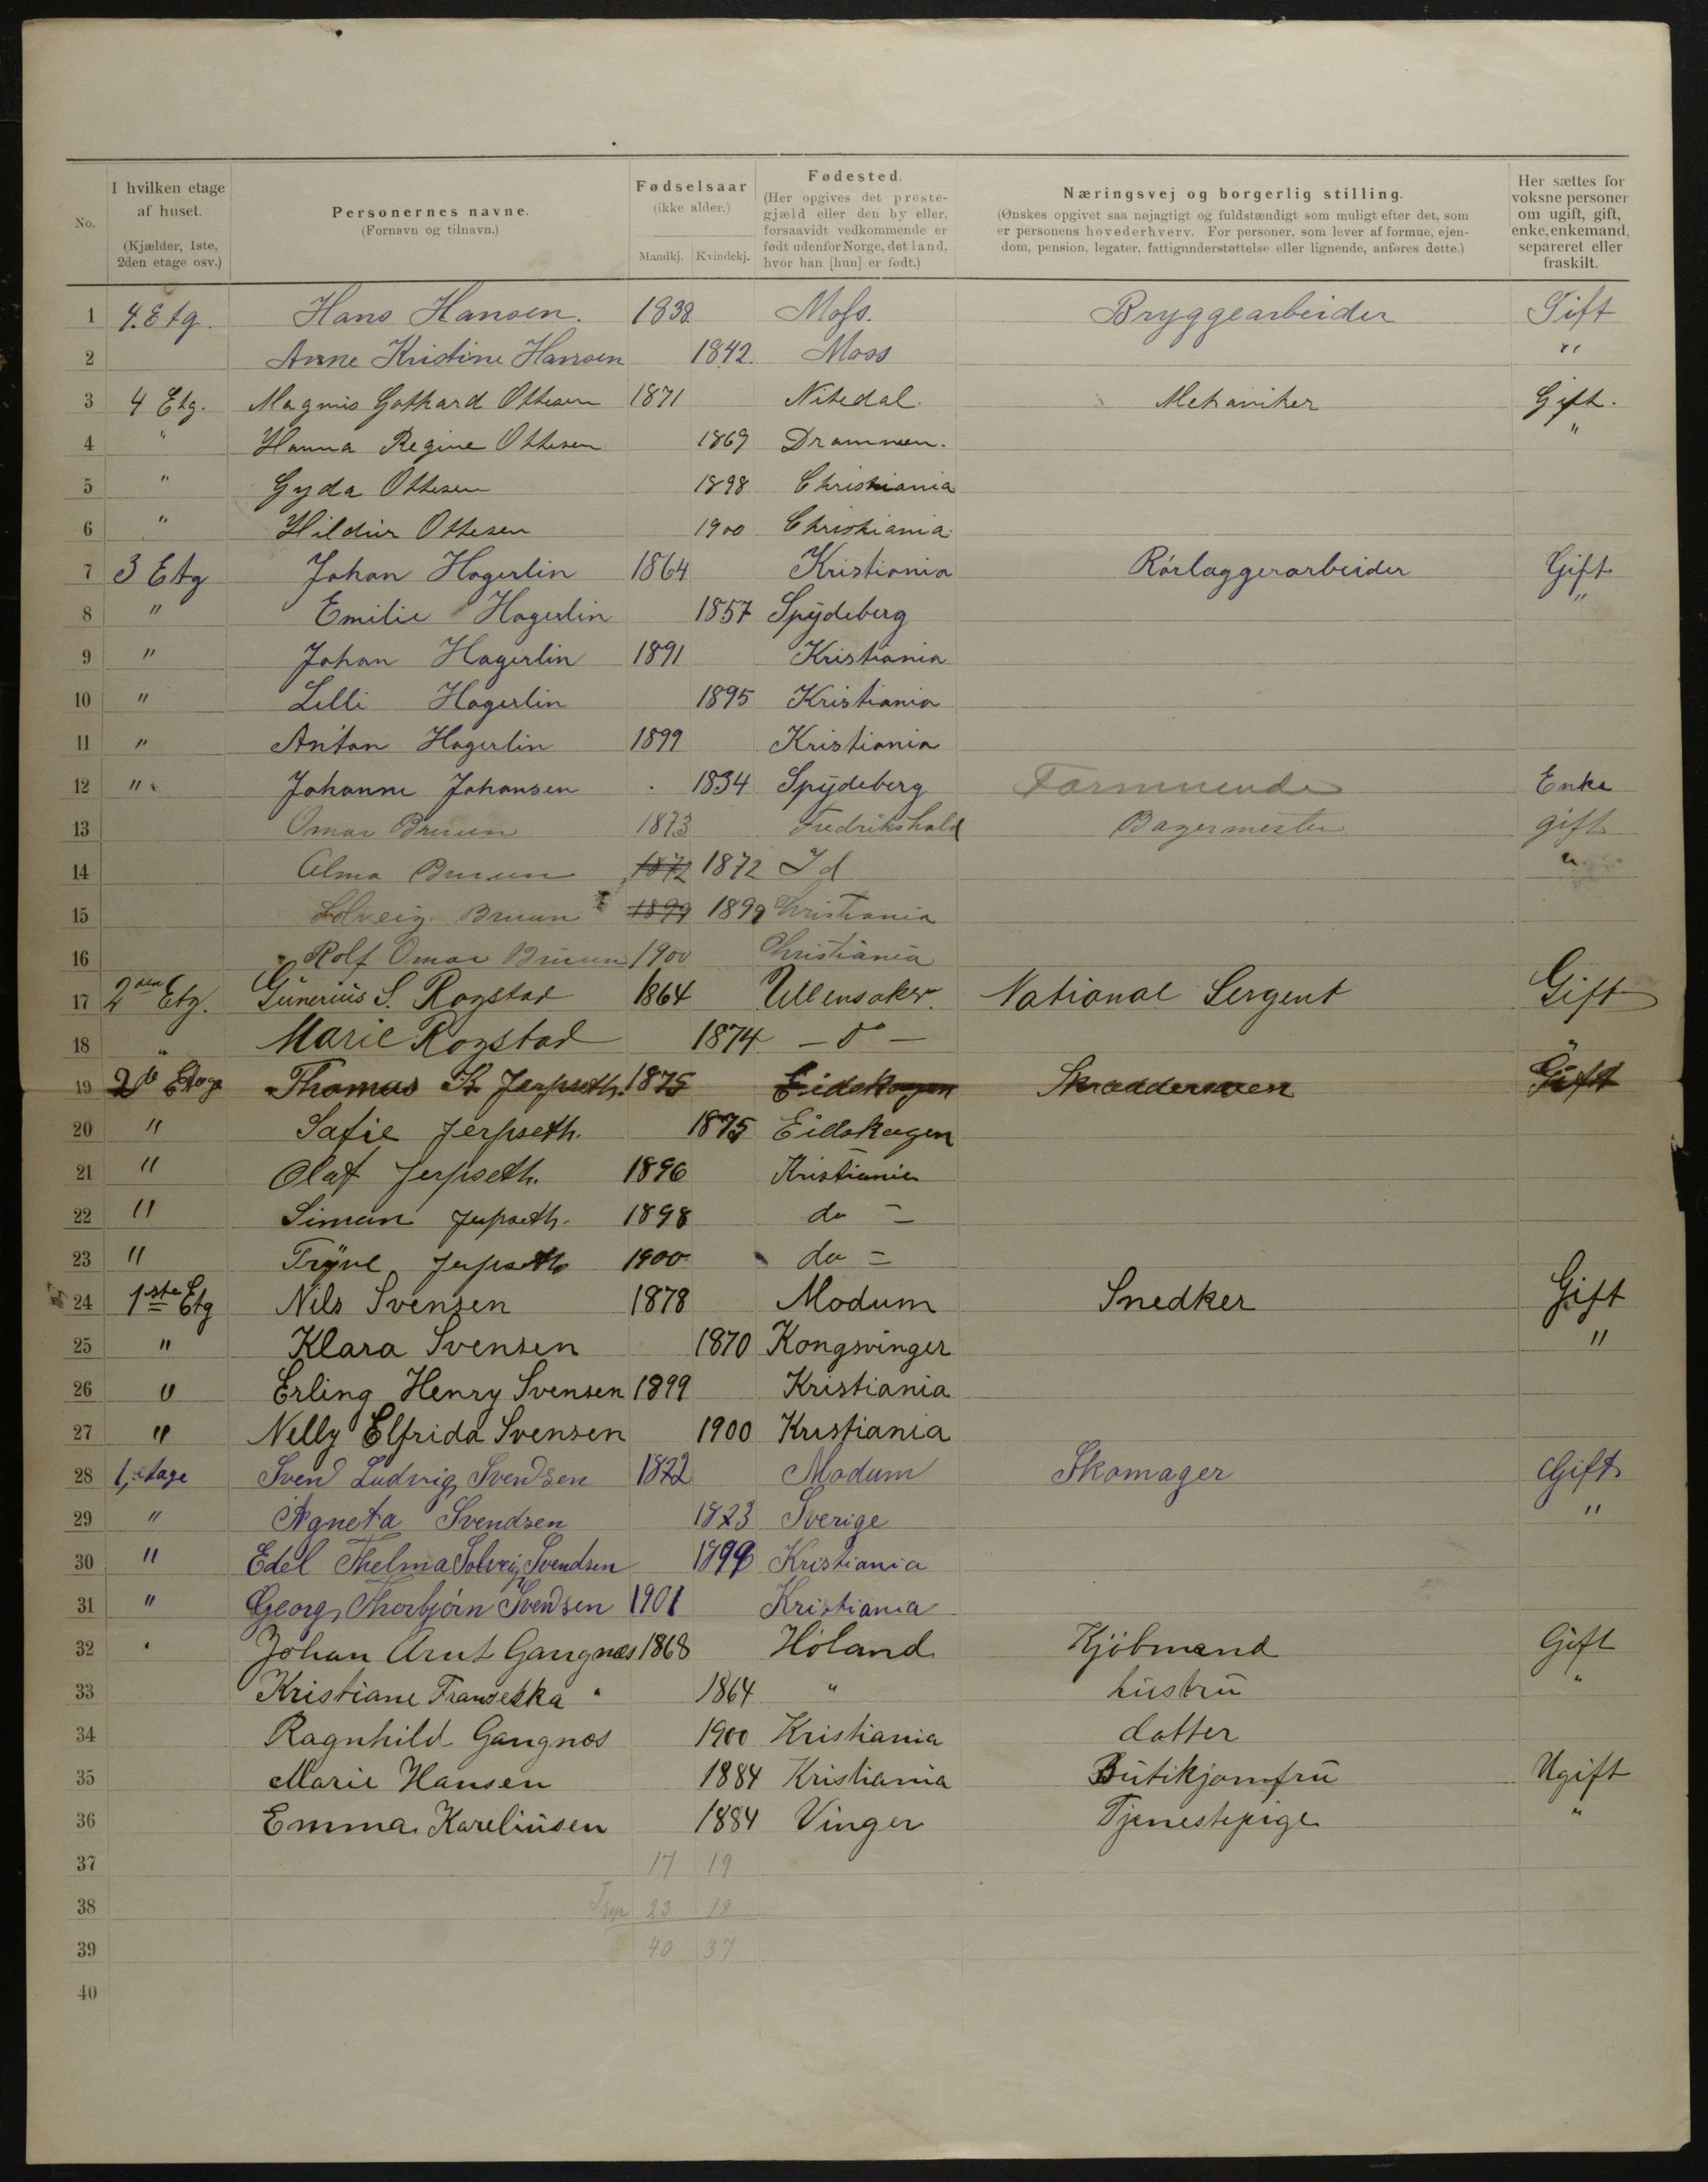 No.
I hvilken etage af huset. (Kjælder, 1ste, 2den etage osv.)
Personernes navne. (Fornavn og tilnavn.)
Fødselsaar (ikke alder.) Mandkj. Kvindekj.
Fødested. (Her opgives det prestegjæld eller den by eller, forsaavidt vedkommende er født udenfor Norge, det land, hvor han [hun] er født.)
Næringsvej og borgerlig stilling. (Ønskes opgivet saa nøjagtigt og fuldstændigt som muligt efter det, som er personens hovederhverv. For personer, som lever af formue, ejendom, pension, legater, fattigunderstøttelse eller lignende, anføres dette.)
Her sættes for voksne personer om ugift, gift, enke, enkemand, separeret eller fraskilt.
1 4. Etg. Hans Hansen. 1838 Moss. Bryggearbeider Gift
2 Anne Kristine Hansen 1842. Moss "
3 4 Etg. Magnus Gothard Ottesen 1871 Nitedal. Mekaniker Gift.
4 " Hanna Regine Ottesen 1869 Drammen. "
5 " Gyda Ottesen 1898 Christiania
6 " Hildur Ottesen 1900 Christiania
7 3 Etg Johan Hagerlin 1864 Kristiania Rörlaggerarbeider Gift
8 " Emilie Hagerlin 1857 Spydeberg "
9 " Johan Hagerlin 1891 Kristiania
10 " Lilli Hagerlin 1895 Kristiania
11 " Anton Hagerlin 1899 Kristiania
12 " Johanne Johansen 1834 Spydeberg Enke
13 Omar Bruun 1873 Fredrikshald Bagermester gift
14 Alma Bruun 1872 1872 Id "
15 Solveig Bruun 1899 1899 Christiania
16 Rolf Omar Bruun 1900 Christiania
17 2den Etg. Gunerius S. Rogstad 1864 Ullensaker. National Sergent Gift
18 " Marie Rogstad 1874 — o — "
19 2de Etage Thomas K Jerpseth. 1875 Eidskogen Skræddersven Gift
20 " Safie Jerpseth. 1875 Eidskogen
21 " Olaf Jerpseth. 1896 Kristiania
22 " Siman Jerpseth. 1898 do —
23 " Trÿve Jerpseth 1900 do =
24 1ste Etg Nils Svensen 1878 Modum Snedker Gift
25 " Klara Svensen 1870 Kongsvinger "
26 " Erling Henry Svensen 1899 Kristiania
27 " Nelly Elfrida Svensen 1900 Kristiania
28 1, etage Svend Ludvig Svendsen 1872 Modum Skomager Gift
29 " Agneta Svendsen 1873 Sverige "
30 " Edel Thelma Solveig Svendsen 1899 Kristiania
31 " Georg Thorbjörn Svendsen 1901 Kristiania
32 " Johan Arnt Gangnæs 1868 Höland Kjöbmand Gift
33 Kristiane Franseska " 1864 " hustru "
34 Ragnhild Gangnæs 1900 Kristiania datter
35 Marie Hansen 1884 Kristiania Butikjomfru Ugift
36 Emma Kareliusen 1884 Vinger Tjenestepige "
37 17 19
38 23 18
39 40 37
40